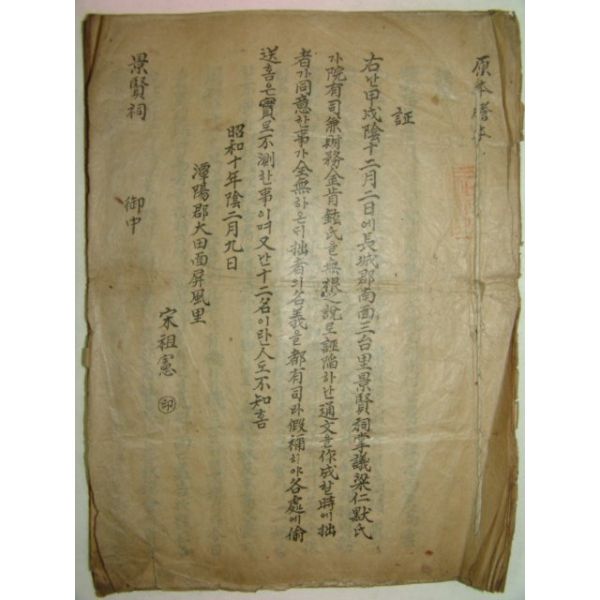 原本謄本
証
右난甲戌陰十二月二日에長城郡南面三台里景賢祠掌議梁仁默氏
가院有司兼財務金肯鉉氏을無根之說로誣陷하난通文을作成할時에拙
者가同意한事가全無하온디拙者의名義을都有司라假稱하야各處에偷
送홈은實로不測한事이며又난十二名이란人도不知홈
昭和十年陰二月九日
潭陽郡大田面屏風里
宋祖憲 印
景賢祠 御中